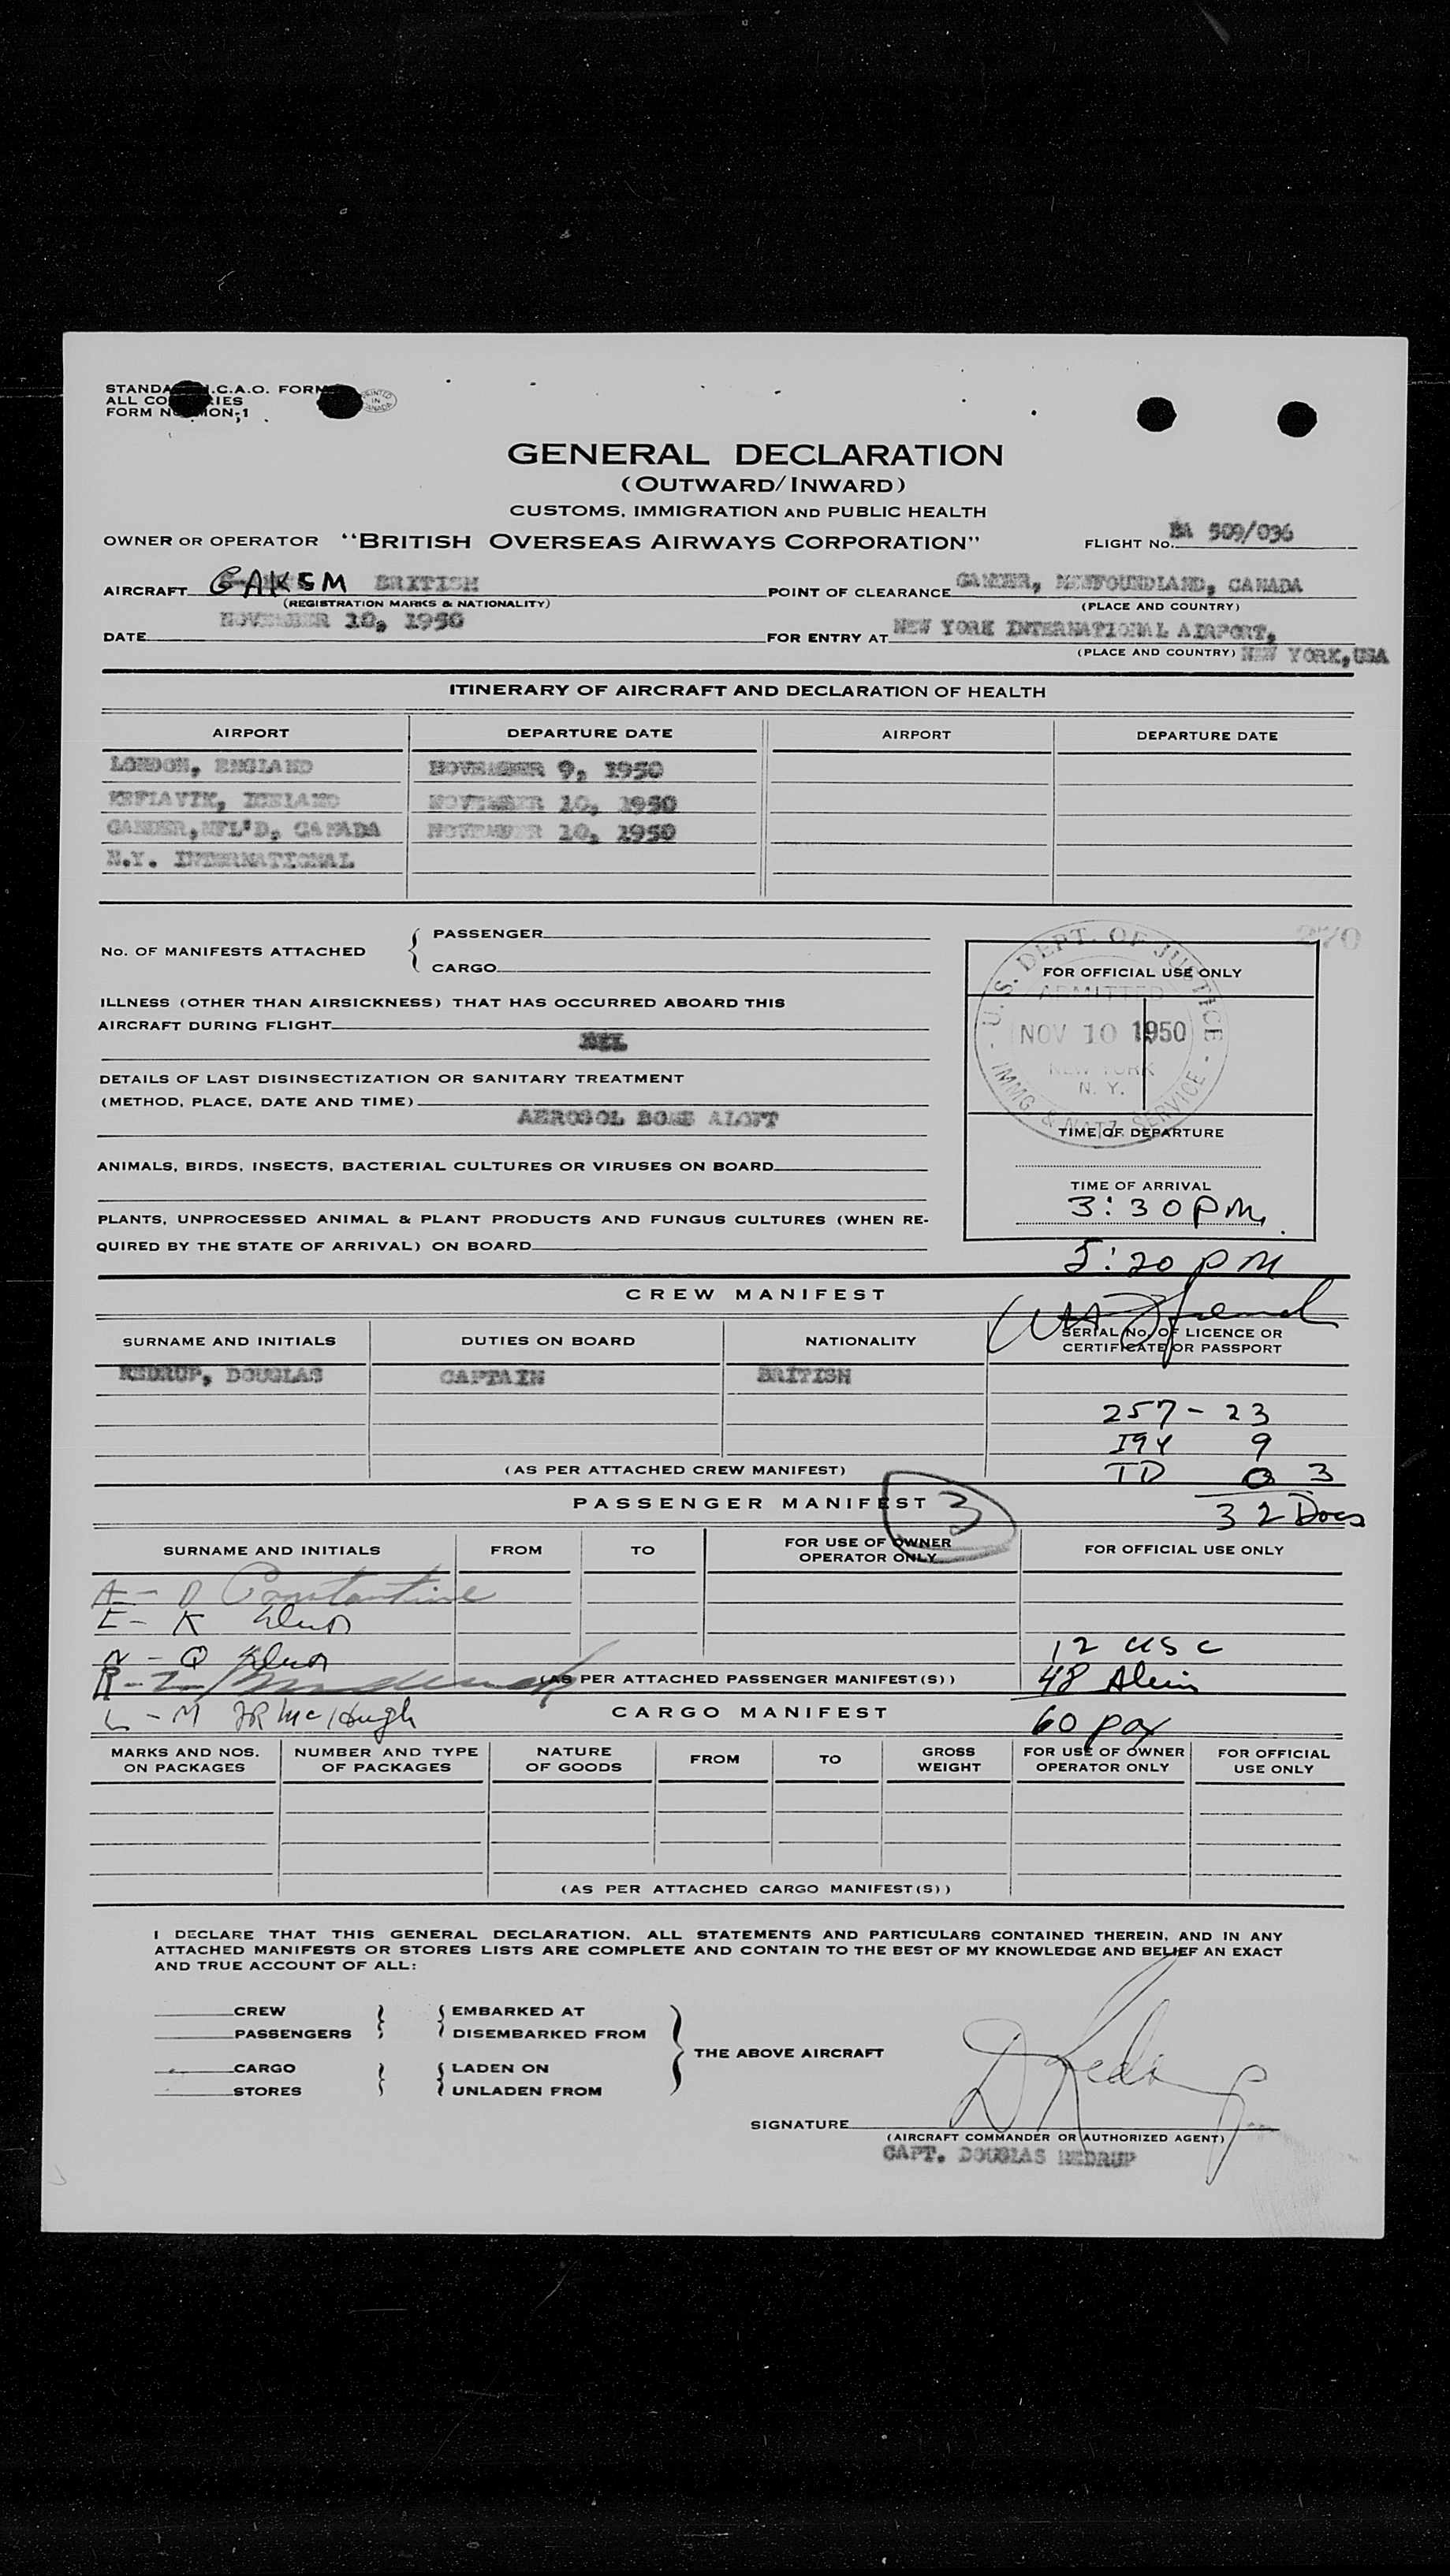 STANDA .C.A.O. FORM
ALL CO RIES
FORM N ION-1
PRINTED IN CANADA
GENERAL DECLARATION
(OUTWARD/INWARD)
CUSTOMS, IMMIGRATION AND PUBLIC HEALTH
OWNER OR OPERATOR "BRITISH OVERSEAS AIRWAYS CORPORATION" FLIGHT No. BA 509/096
AIRCRAFT GAKGM BRITISH POINT OF CLEARANCE GANDER, NEWFOUNDLAND, CANADA
(REGISTRATION MARKS & NATIONALITY) (PLACE AND COUNTRY)
DATE NOVEMBER 10, 1950 FOR ENTRY AT NEW YORK INTERNATIONAL AIRPORT,
(PLACE AND COUNTRY) NEW YORK, USA
ITINERARY OF AIRCRAFT AND DECLARATION OF HEALTH
AIRPORT DEPARTURE DATE AIRPORT DEPARTURE DATE
LONDON, ENGLAND NOVEMBER 9, 1950
KEFLAVIK, ICELAND NOVEMBER 10, 1950
GANDER, NFL'D, CANADA NOVEMBER 10, 1950
N.Y. INTERNATIONAL
No. OF MANIFESTS ATTACHED { PASSENGER
CARGO
270
FOR OFFICIAL USE ONLY
U.S. DEPT. OF JUSTICE
ADMITTED
NOV 10 1950
NEW YORK
N. Y.
IMMG & NATZ SERVICE
ILLNESS (OTHER THAN AIRSICKNESS) THAT HAS OCCURRED ABOARD THIS
AIRCRAFT DURING FLIGHT
NIL
DETAILS OF LAST DISINSECTIZATION OR SANITARY TREATMENT
(METHOD, PLACE, DATE AND TIME)
AEROSOL BOMB ALOFT
TIME OF DEPARTURE
ANIMALS, BIRDS, INSECTS, BACTERIAL CULTURES OR VIRUSES ON BOARD
TIME OF ARRIVAL
3:30 PM
PLANTS, UNPROCESSED ANIMAL & PLANT PRODUCTS AND FUNGUS CULTURES (WHEN RE-
QUIRED BY THE STATE OF ARRIVAL) ON BOARD
5:20 PM
CREW MANIFEST
SURNAME AND INITIALS DUTIES ON BOARD NATIONALITY SERIAL No. OF LICENCE OR
CERTIFICATE OR PASSPORT
REDRUP, DOUGLAS CAPTAIN BRITISH
257 - 23
I94 9
TD 0 3
(AS PER ATTACHED CREW MANIFEST)
32 Docs
PASSENGER MANIFEST 3
SURNAME AND INITIALS FROM TO FOR USE OF OWNER
OPERATOR ONLY FOR OFFICIAL USE ONLY
A - D Constantine
E - K
N - Q
12 USC
R - Z
(AS PER ATTACHED PASSENGER MANIFEST(S))
48 Alien
L - M JR McHugh
60 pax
CARGO MANIFEST
MARKS AND NOS.
ON PACKAGES NUMBER AND TYPE
OF PACKAGES NATURE
OF GOODS FROM TO GROSS
WEIGHT FOR USE OF OWNER
OPERATOR ONLY FOR OFFICIAL
USE ONLY
(AS PER ATTACHED CARGO MANIFEST(S))
I DECLARE THAT THIS GENERAL DECLARATION, ALL STATEMENTS AND PARTICULARS CONTAINED THEREIN, AND IN ANY
ATTACHED MANIFESTS OR STORES LISTS ARE COMPLETE AND CONTAIN TO THE BEST OF MY KNOWLEDGE AND BELIEF AN EXACT
AND TRUE ACCOUNT OF ALL:
CREW EMBARKED AT
PASSENGERS DISEMBARKED FROM
THE ABOVE AIRCRAFT
CARGO LADEN ON
STORES UNLADEN FROM
SIGNATURE D Redrup
(AIRCRAFT COMMANDER OR AUTHORIZED AGENT)
CAPT. DOUGLAS REDRUP